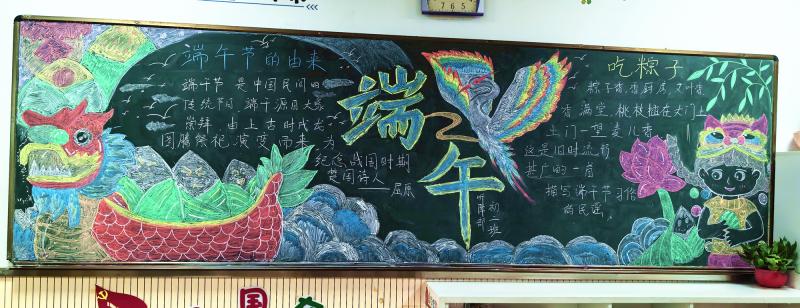 端午节的由来
端午节 是中国民间的
传统节日,端午源自天象
崇拜,由上古时代龙
图腾祭祀演变而来 为
纪念战国时期
楚国诗人
——屈原
端午
初一班
听障部
吃粽子
粽子香,香厨房,艾叶香
香满堂,桃枝插在大门上
门一望麦儿
这是旧时流行
甚广的一首
描写端午节习俗
的民谣。
7 6 5
国